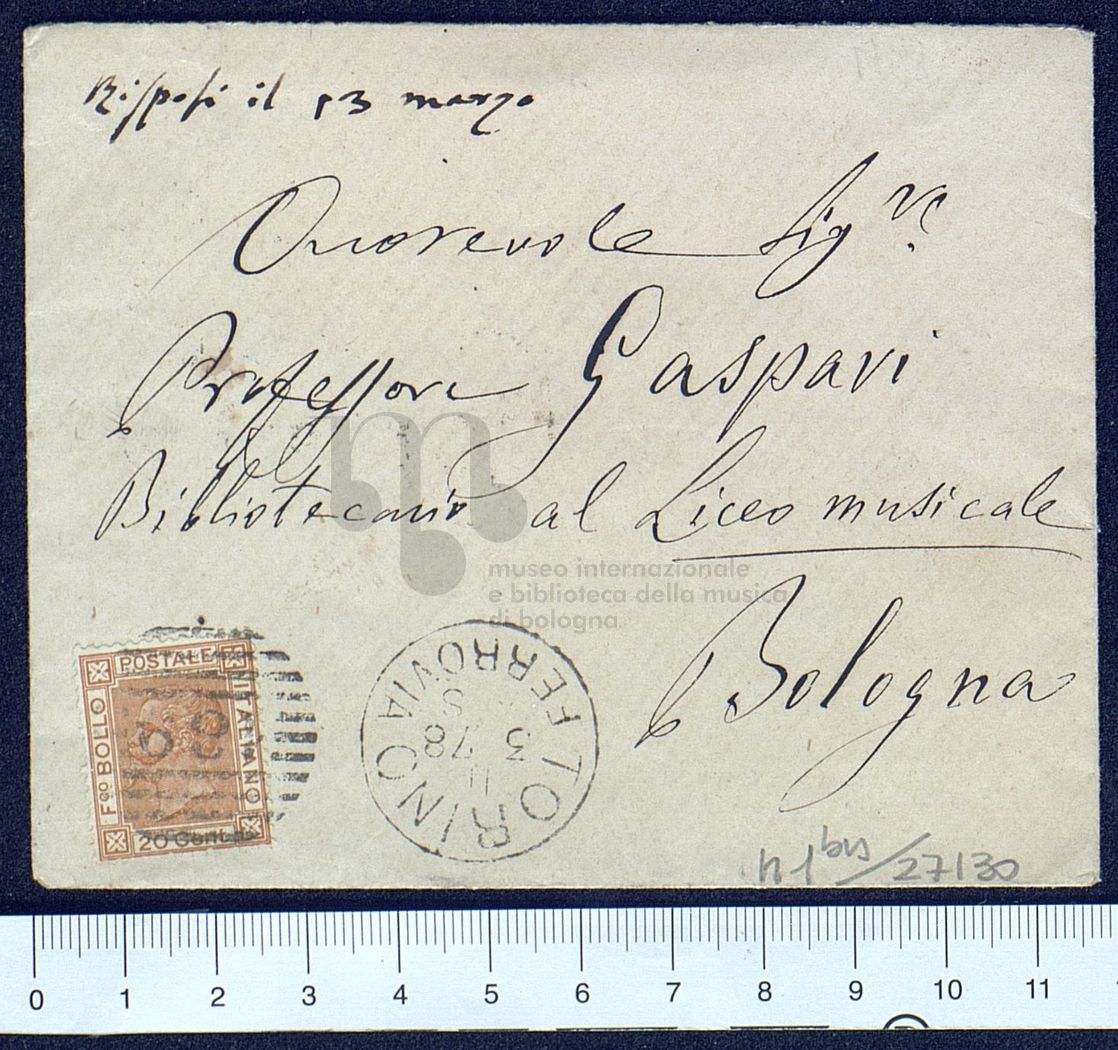 Risposi il 13 marzo
Onorevole Sig.re
Professore Gaspari
Bibliotecario al Liceo musicale
Bologna
museo internazionale
e biblioteca della musica
di bologna
POSTALE ITALIANO
Fco BOLLO
20 Cent.
TORINO FERROVIA
11
3
78
S
41 bis/27130
0 1 2 3 4 5 6 7 8 9 10 11